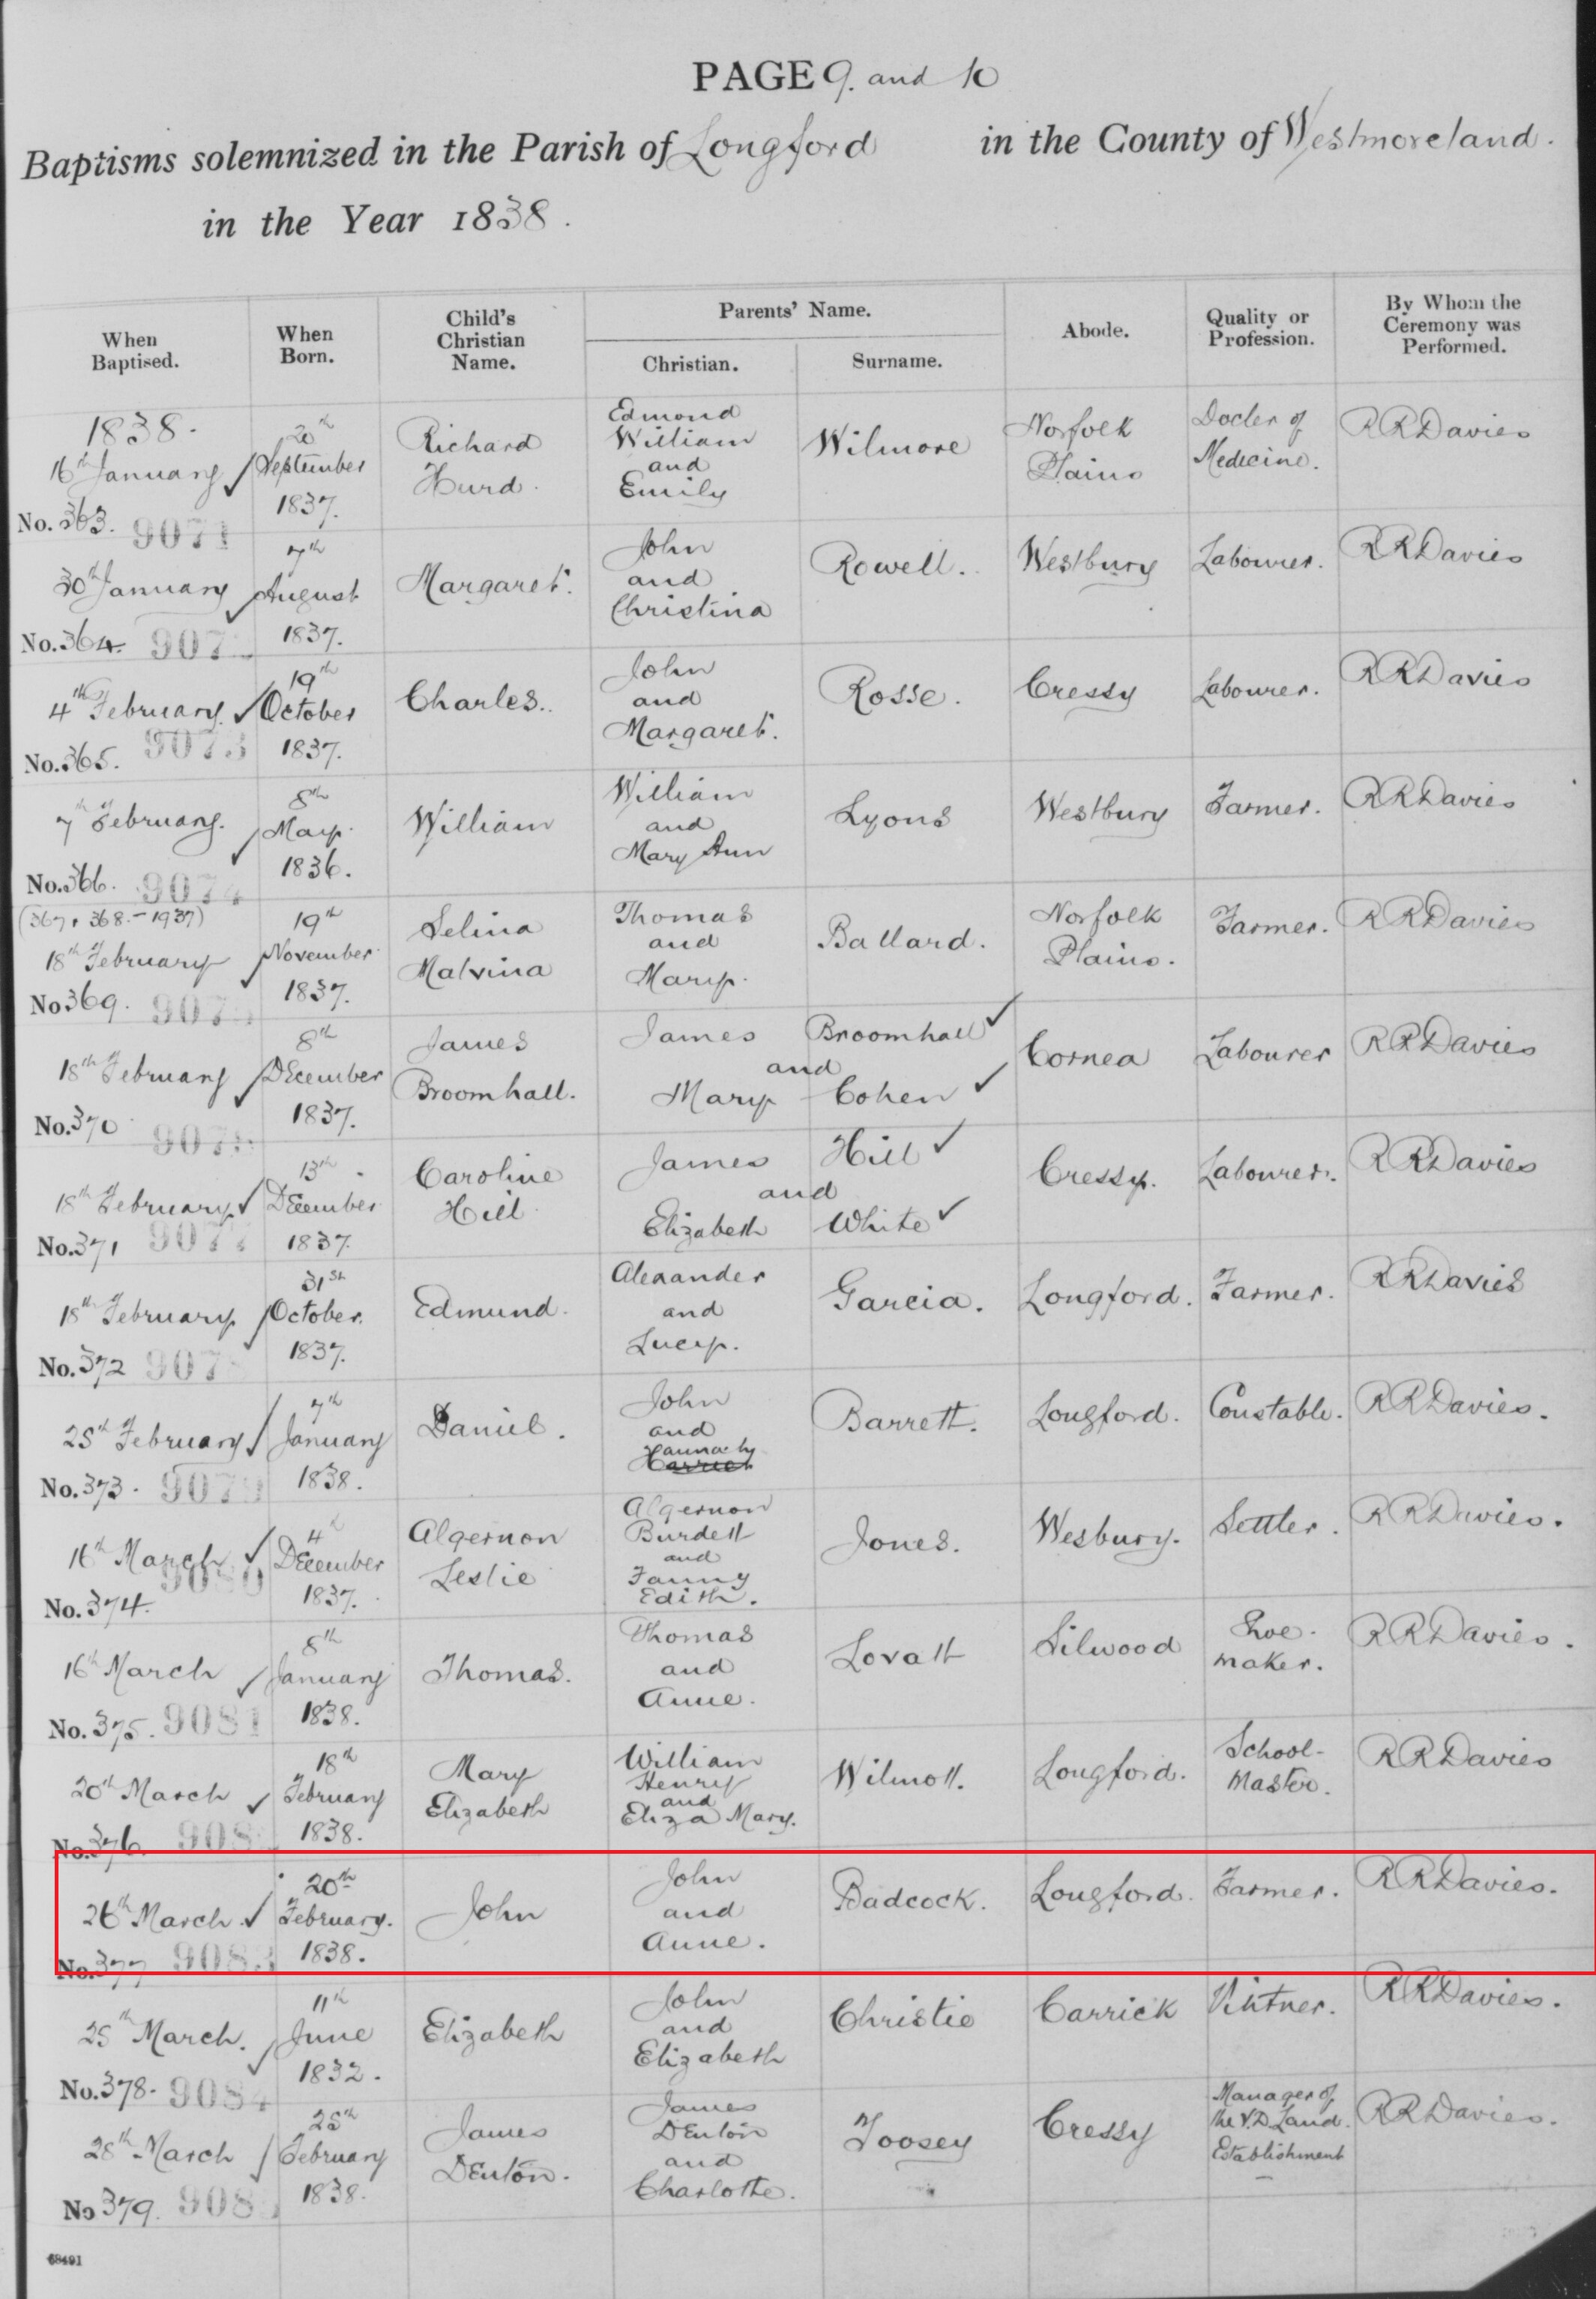 PAGE 9. and 10
Baptisms solemnized in the Parish of Longford in the County of Westmoreland.
in the Year 1838.
When Baptised. When Born. Child's Christian Name. Parents' Name. Christian. Surname. Abode. Quality or Profession. By Whom the Ceremony was Performed.
1838.
16th January 20th September 1837. Richard Hurd. Edmond William and Emily Wilmore Norfolk Plains Docter of Medicine. RRDavies
No. 363. 9071
30th January 7th August 1837. Margaret. John and Christina Rowell. Westbury Labourer. RRDavies
No. 364. 907
4th February. 19th October 1837. Charles. John and Margaret. Rosse. Cressy Labourer. RRDavies
No. 365. 9073
7th February. 8th May. 1836. William William and Mary Ann Lyons Westbury Farmer. RRDavies
No. 366. 9074
(367 & 368 - 1937)
18th February 19th November 1837. Selina Malvina Thomas and Mary. Ballard. Norfolk Plains. Farmer. RRDavies
No 369. 907
18th February 8th December 1837. James Broomhall. James Broomhall and Mary Cohen Cornea Labourer RRDavies
No. 370 907
18th February 13th December 1837. Caroline Hill James Hill and Elizabeth White Cressy. Labourer. RRDavies
No. 371 9077
18th February 31st October. 1837. Edmund. Alexander and Lucy. Garcia. Longford. Farmer. RRDavies
No. 372 907
25th February 7th January 1838. Daniel. John and Hannah Barrett. Longford. Constable. RRDavies.
No. 373. 9079
16th March 4th December 1837. Algernon Leslie Algernon Burdett and Fanny Edith. Jones. Wesbury. Settler. RRDavies.
No. 374. 9080
16th March 8th January 1838. Thomas. Thomas and Anne. Lovatt Lilwood Shoe-maker. RRDavies.
No. 375. 9081
20th March 18th February 1838. Mary Elizabeth William Henry and Eliza Mary. Wilmott. Longford. School-Master. RRDavies
No. 376. 908
26th March. 20th February. 1838. John John and Anne. Badcock. Longford. Farmer. RRDavies.
No. 377 9083
25th March. 11th June 1832. Elizabeth John and Elizabeth Christie Carrick Vintner. RRDavies.
No. 378. 9084
28th March 25th February 1838. James Denton. James Denton and Charlotte. Toosey Cressy Manager of the V.D Land. Establishment RRDavies.
No 379. 908
68491